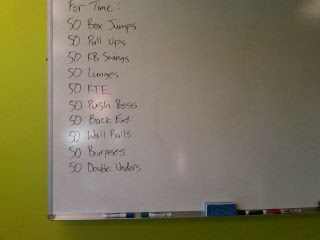 For Time:
50 Box Jumps
50 Pull Ups
50 KB Swings
50 Lunges
50 KTE
50 Push Press
50 Back Ext
50 Wall Balls
50 Burpees
50 Double Unders